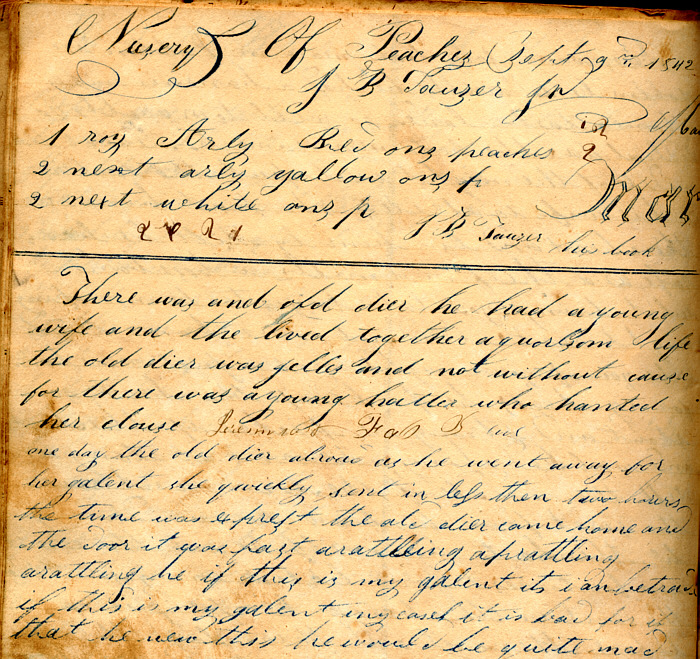 Nusery Of Peaches Sept 9th 1842
J B Tauzer Jr
1 roy Arly Red ons peaches
2 next arly yallow ons p
2 next white ons p
Mar
J B Tauzer his book
There was and old dier he had a young
wife and the lived together a quorlsom life
the old dier was jelles and not without cause
for there was a young hatter who hanted
her clouse
one day the old dier abroad as he went away for
her galent she quickly sent in less then two hours
the time was exprest the old dier came home and
the door it was fast a rattleing a prattling
a rattling he if this is my galent its i am betraid
if this is my galent in cases it is bad for if
that he new this he would be quite mad